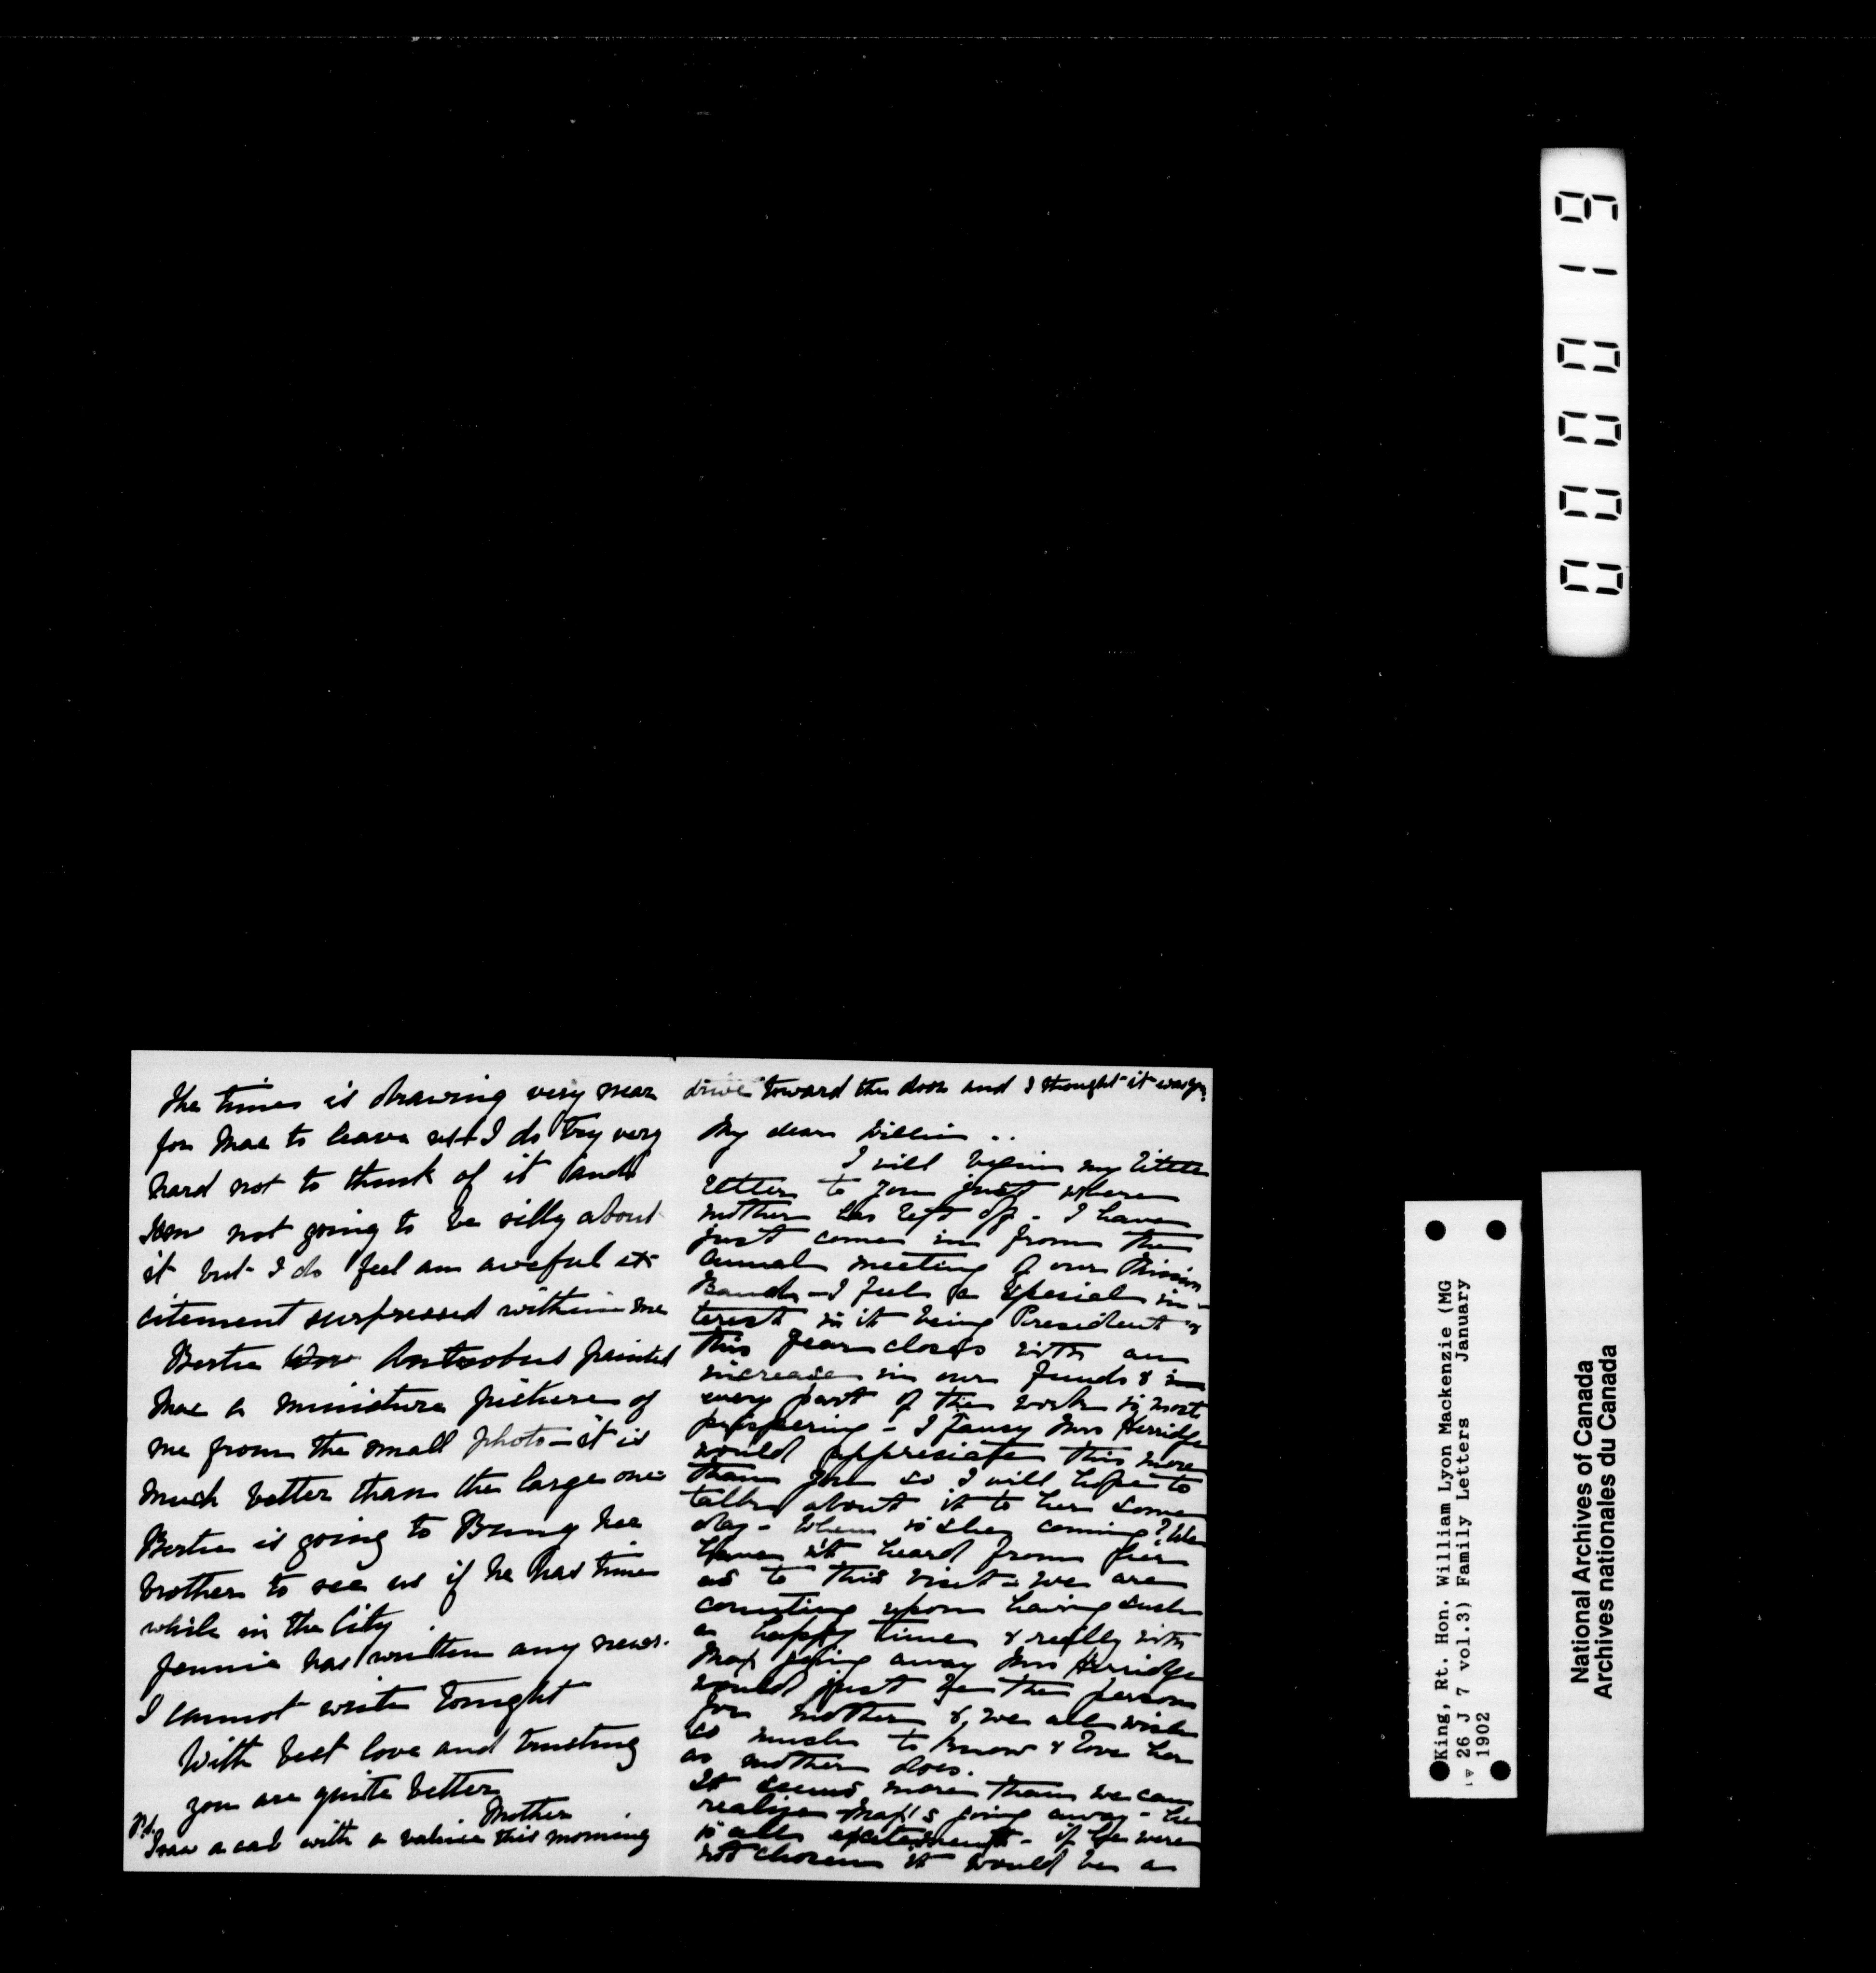 The time is drawing very near
for Mac to leave us + I do try very
hard not to think of it and
am not going to be silly about
it but I do feel an aweful ex-
citement surpressed within me
Bertie Antrobus painted
Mac a miniature picture of
me from the small photo - it is
much better than the large one
Bertie is going to Bring her
brother to see us if he has time
while in the City
Jennie has written any news.
I cannot write tonight
With best love and trusting
you are quite better
Mother
P.S.
I saw a cab with a valise this morning
drive toward the door and I thought it was you.
My dear Willie ..
I will begin my little
letter to you just where
mother has left off - I have
just come in from the
annual meeting of our Mission
Band - I feel a special in-
terest in it being President &
this year closes with an
increase in our funds & in
every part of the work is most
prospering - I fancy Mrs Herridge
would appreciate this more
than you so I will hope to
talk about it to her some
day - When is she coming? We
haven't heard from her
as to this visit - we are
counting upon having such
a happy time & really with
Max going away Mrs Herridge
would just be the person
for mother & we all wish
so much to know & love her
as mother does.
It seems more than we can
realize Max's going away - he
is all excitement - if he were
not chosen it would be a
000019
King, Rt. Hon. William Lyon Mackenzie (MG
26 J 7 vol.3) Family Letters January
1902
National Archives of Canada
Archives nationales du Canada